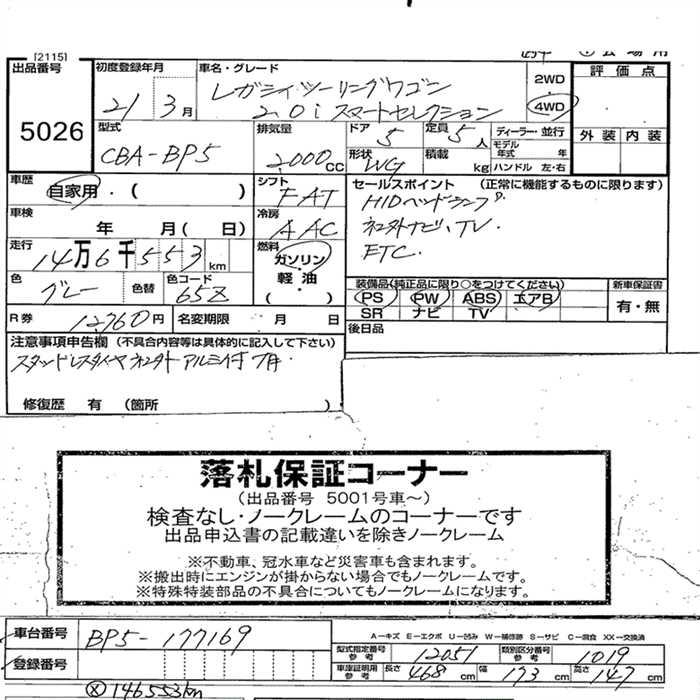 [2115]
出品番号 5026
初度登録年月 21 3月
車名・グレード レガシィツーリングワゴン
2.0i スマートセレクション
2WD
4WD
評価点
外装 内装
型式 CBA-BP5
排気量 2000CC
ドア 5
定員 5人
ディーラー・並行
モデル年式 年
形状 WG
積載 kg
ハンドル 左・右
車歴 自家用・( )
シフト FAT
セールスポイント (正常に機能するものに限ります)
HIDヘッドランプ
社外ナビ、TV.
ETC.
車検 年 月( 日)
冷房 AAC
走行 14万6千553km
燃料 ガソリン・軽油 ( )
色 グレー
色替
色コード 65Z
装備品(純正品に限り○をつけてください)
PS PW ABS エアB
SR ナビ TV
新車保証書
有・無
R券 12760円
名変期限 月 日
後日品
注意事項申告欄 (不具合内容等は具体的に記入して下さい)
スタッドレスタイヤ社外アルミ付
修復歴 有 (箇所 )
落札保証コーナー
(出品番号 5001号車~)
検査なし・ノークレームのコーナーです
出品申込書の記載違いを除きノークレーム
※不動車、冠水車など災害車も含まれます。
※搬出時にエンジンが掛からない場合でもノークレームです。
※特殊特装部品の不具合についてもノークレームになります。
車台番号 BP5-177169
A-キズ E-エクボ U-凹み W-補修跡 S-サビ C-腐食 XX-交換済
型式指定番号 参考 12051
類別区分番号 参考 1019
登録番号
車庫証明用 参考 長さ 468cm 幅 173cm 高さ 147cm
ⓧ146553km